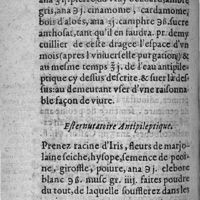 ana ʒj. cinamome, cardamome,
bois d'aloés, ana ʒj. camphre ʒß. sucre
anthosat, tant qu'il en faudra. pr. demy
cuillier de cette dragee l'espace d'vn
mois (apres l vniuerselle purgation) &
au mesme temps ʒj. de l'eau antipile-
ptique cy dessus descrite & suer là des-
sus: au demeurant vser d'vne raisonna
ble façon de viure.
Esternutatoire Antipileptique.
Prenez racine d'Iris, fleurs de marjo-
laine seiche, hysope, semence de peoi-
ne, giroffle, poiure, ana ʒj. elebore
blanc ʒß. musc gr. iiij. faites poudre
du tout, de laquelle soufflerez dans les